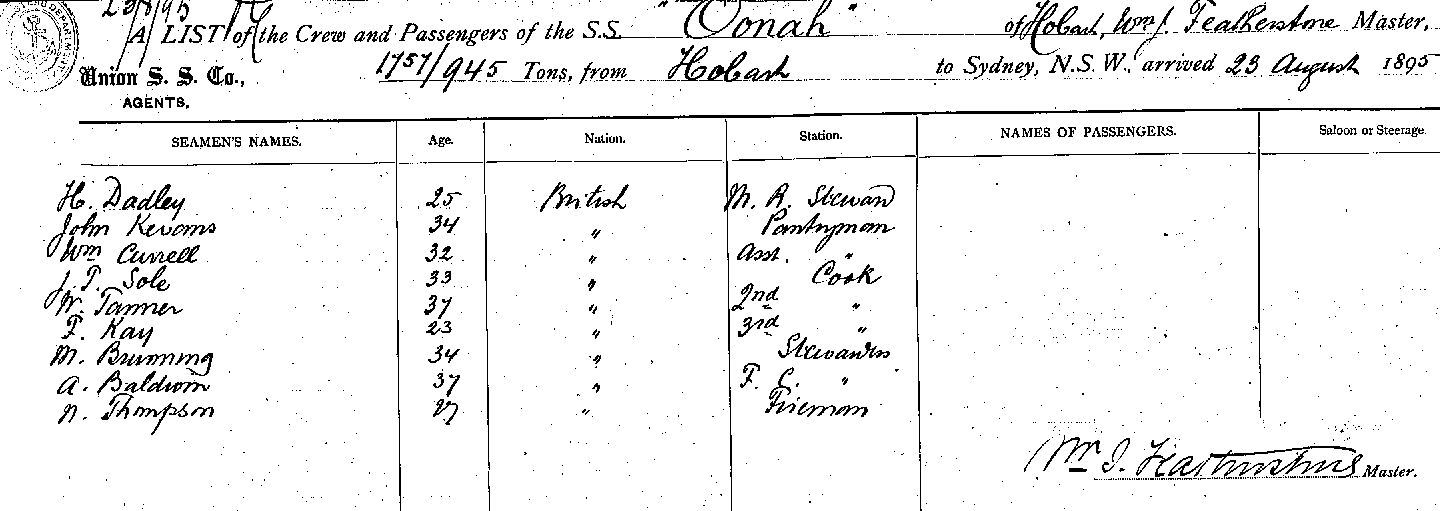 23/8/95
A LIST of the Crew and Passengers of the S.S. "Oonah" of Hobart, Wm J. Featherstone Master,
Union S. S. Co., 1757/945 Tons, from Hobart to Sydney, N.S.W., arrived 23 August 1895
AGENTS.
SEAMEN'S NAMES. Age. Nation. Station. NAMES OF PASSENGERS. Saloon or Steerage.
H. Dadley 25 British M. R. Steward
John Kevans 34 " Pantryman
Wm Currell 32 " Asst. "
J. T. Sole 33 " Cook
W. Tanner 37 " 2nd "
F. Kay 23 " 3rd "
M. Browning 34 " Stewardess
A. Baldwin 37 " F. C. "
N. Thompson 27 " Fireman
Wm J. Featherstone Master.